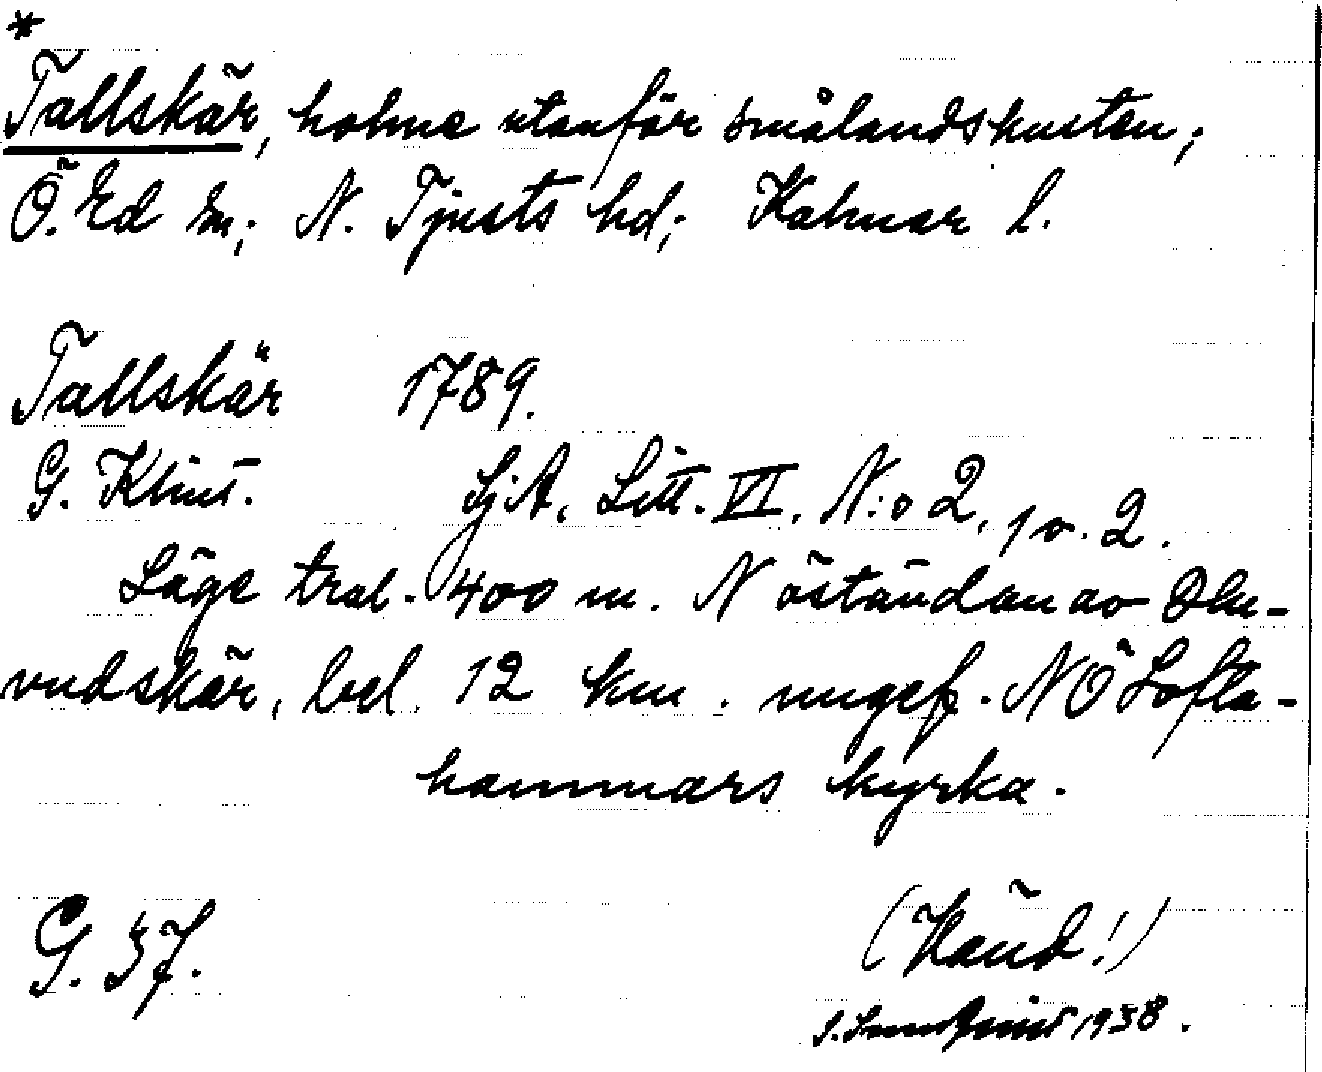 *
Tallskär, holme utanför smålandskusten;
Ö. Ed sn; N. Tjusts hd; Kalmar l.
Tallskär 1789.
G. Klint. SjA, Litt. VI. N:o 2, p. 2.
Läge tral. 400 m. N östandan av Olu-
vudskär, bel. 12 km. ungef. NÖ Lofta-
hammars kyrka.
G. 37. (Känd!)
1938.